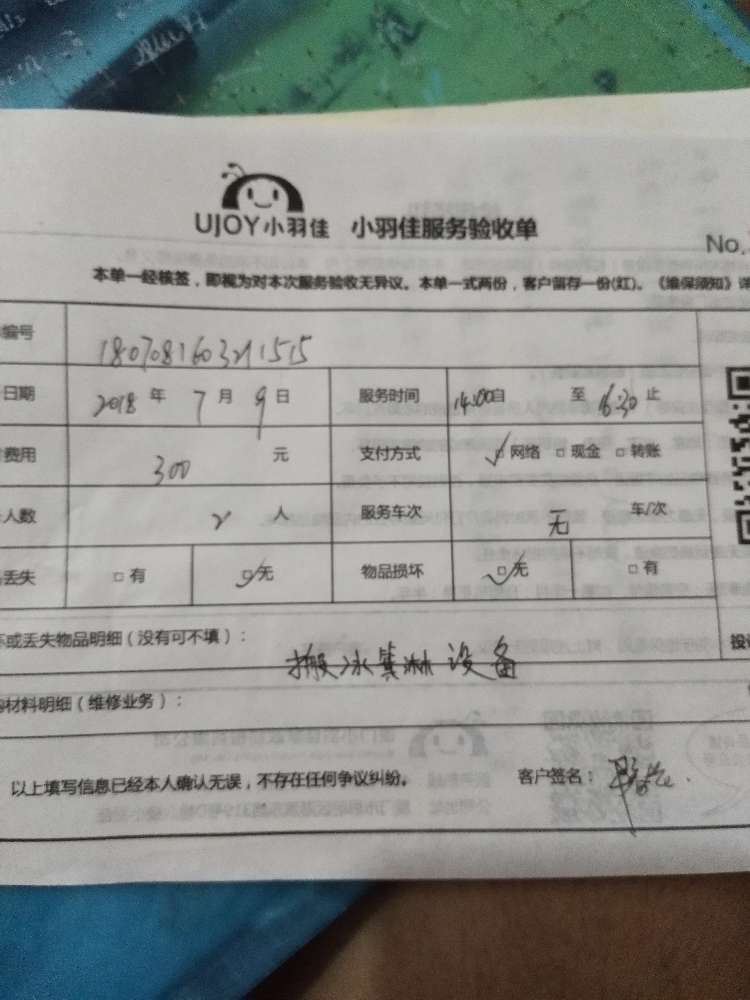 UJOY小羽佳 小羽佳服务验收单
No.
本单一经核签，即视为对本次服务验收无异议。本单一式两份，客户留存一份(红)。《维保须知》详
编号 180708160321515
日期 2018 年 7 月 9 日 服务时间 14:00自 至 16:30 止
费用 300 元 支付方式 网络 现金 转账
人数 2 人 服务车次 无 车/次
丢失 有 无 物品损坏 无 有
坏或丢失物品明细（没有可不填）： 投诉
搬冰箕淋设备
材料明细（维修业务）：
以上填写信息已经本人确认无误，不存在任何争议纠纷。 客户签名：